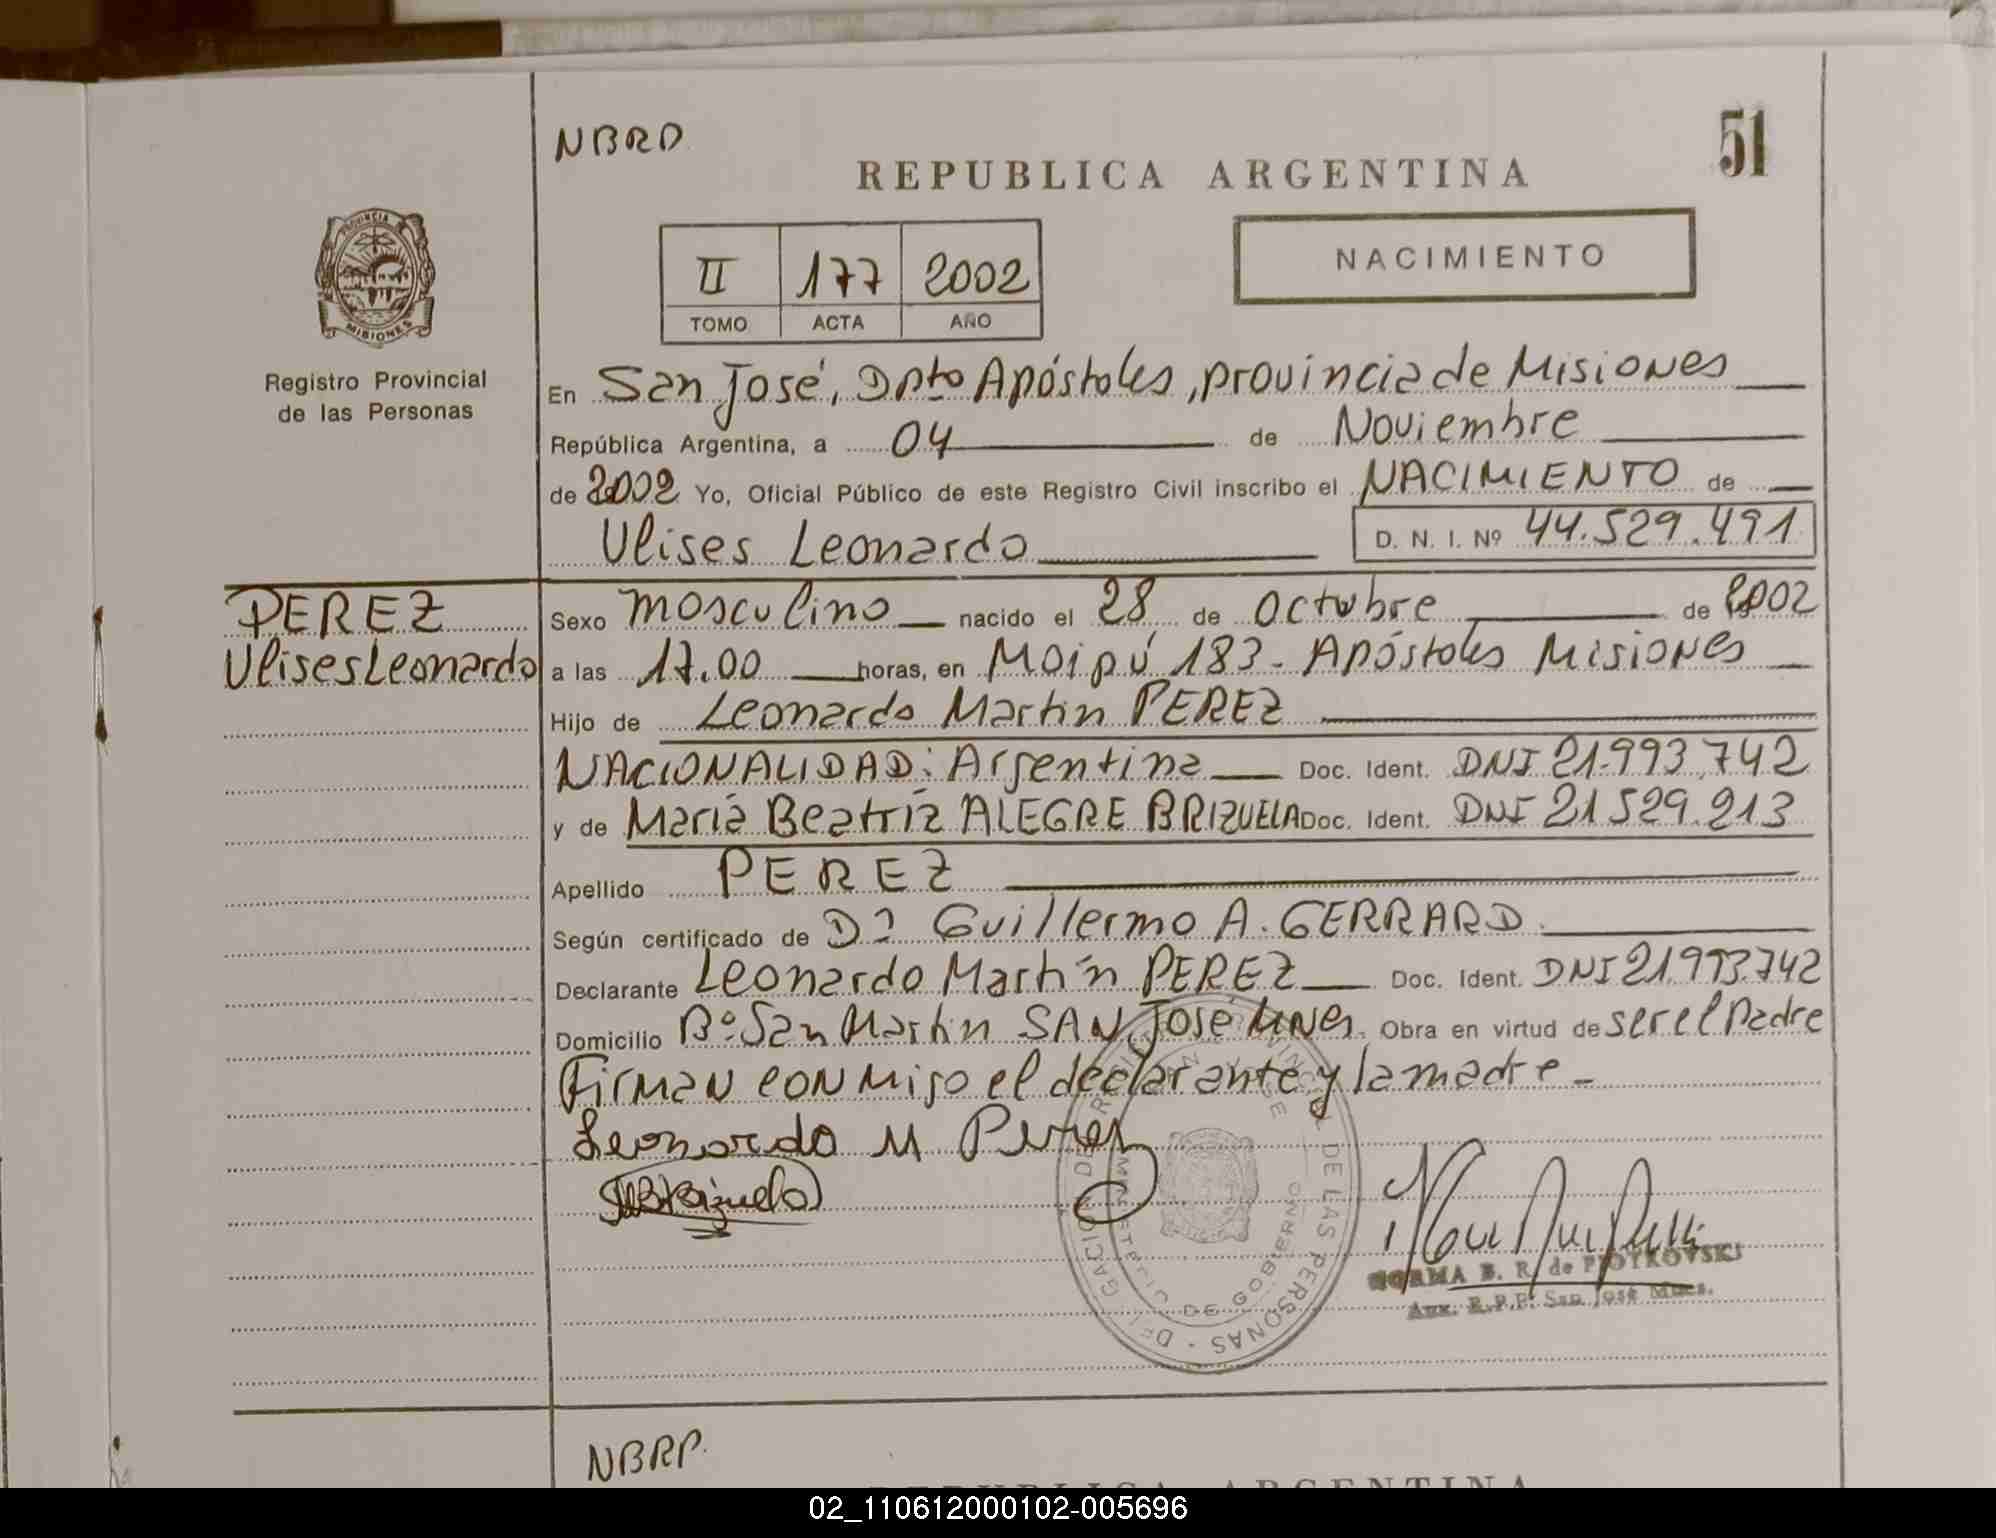 NBRP
51
REPUBLICA ARGENTINA
PROVINCIA
MISIONES
II 177 2002
TOMO ACTA AÑO
NACIMIENTO
Registro Provincial
de las Personas
En San José, Dpto Apóstoles, provincia de Misiones
República Argentina, a 04 de Noviembre
de 2002 Yo, Oficial Público de este Registro Civil inscribo el NACIMIENTO de
Ulises Leonardo D. N. I. Nº 44.529.491
PEREZ
Ulises Leonardo
Sexo masculino nacido el 28 de octubre de 2002
a las 17.00 horas, en Maipú 183 - Apóstoles Misiones
Hijo de Leonardo Martin PEREZ
NACIONALIDAD: Argentina Doc. Ident. DNI 21.993.742
y de María Beatríz ALEGRE BRIZUELA Doc. Ident. DNI 21.529.213
Apellido PEREZ
Según certificado de Dr Guillermo A. GERRARD
Declarante Leonardo Martín PEREZ Doc. Ident. DNI 21.993.742
Domicilio Bº San Martin SAN José Mnes. Obra en virtud de ser el Padre
Firman conmigo el declarante y la madre -
Leonardo M Perez
MBBrizuela
DE LAS PERSONAS
DE GOBIERNO
NORMA B. R. de PIOTROVSKI
Aux. R.P.P. San José Mnes.
NBRP.
REPUBLICA ARGENTINA
02_110612000102-005696